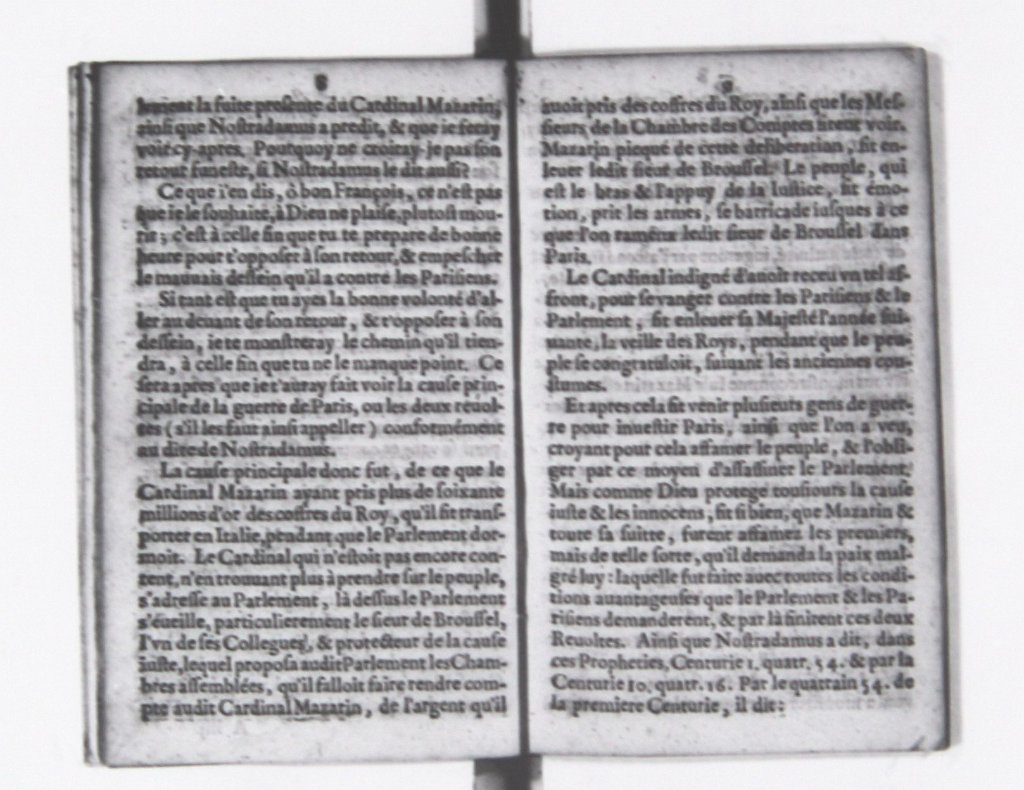 8
la fuite presente du Cardinal Mazarin,
ainsi que Nostradamus a predit, & que ie feray
voir cy-apres. Pourquoy ne croiray-je pas son
retour funeste, si Nostradamus le dit aussi?
Ce que i'en dis, ô bon François, ce n'est pas
que ie le souhaite, à Dieu ne plaise, plutost mou-
rir; c'est à celle fin que tu te prepare de bonne
heure pour t'opposer à son retour, & empescher
le mauuais dessein qu'il a contre les Parisiens.
Si tant est que tu ayes la bonne volonté d'al-
ler au deuant de son retour, & t'opposer à son
dessein, ie te monstreray le chemin qu'il tien-
dra, à celle fin que tu ne le manque point. Ce
sera apres que ie t'auray fait voir la cause prin-
cipale de la guerre de Paris, ou les deux reuol-
tes (s'il les faut ainsi appeller) conformément
au dire de Nostradamus.
La cause principale donc fut, de ce que le
Cardinal Mazarin ayant pris plus de soixante
millions d'or des coffres du Roy, qu'il fit trans-
porter en Italie, pendant que le Parlement dor-
moit. Le Cardinal qui n'estoit pas encore con-
tent, n'en trouuant plus à prendre sur le peuple,
s'adresse au Parlement, là dessus le Parlement
s'éueille, particulierement le sieur de Broussel,
l'vn de ses Collegues, & protecteur de la cause
iuste, lequel proposa audit Parlement les Cham-
bres assemblées, qu'il falloit faire rendre com-
pte audit Cardinal Mazarin, de l'argent qu'il
9
auoit pris des coffres du Roy, ainsi que les Mes-
sieurs de la Chambre des Comptes firent voir.
Mazarin picqué de cette deliberation, fit en-
leuer ledit sieur de Broussel. Le peuple, qui
est le bras & l'appuy de la Iustice, fit émo-
tion, prit les armes, se barricade iusques à ce
que l'on ramena ledit sieur de Broussel dans
Paris.
Le Cardinal indigné d'auoir receu vn tel af-
front, pour se vanger contre les Parisiens & le
Parlement, fit enleuer sa Majesté l'année sui-
uante, la veille des Roys, pendant que le peu-
ple se congratuloit, suiuant les anciennes cou-
stumes.
Et apres cela fit venir plusieurs gens de guer-
re pour inuestir Paris, ainsi que l'on a veu,
croyant pour cela affamer le peuple, & l'obli-
ger par ce moyen d'assassiner le Parlement.
Mais comme Dieu protege tousiours la cause
iuste & les innocens, fit si bien, que Mazarin &
toute sa suitte, furent affamez les premiers,
mais de telle sorte, qu'il demanda la paix mal-
gré luy: laquelle fut faite auec toutes les condi-
tions auantageuses que le Parlement & les Pa-
risiens demanderent, & par là finirent ces deux
Reuoltes. Ainsi que Nostradamus a dit, dans
ces Propheties, Centurie 1. quatr. 54. & par la
Centurie 10. quatr. 16. Par le quatrain 54. de
la premiere Centurie, il dit: